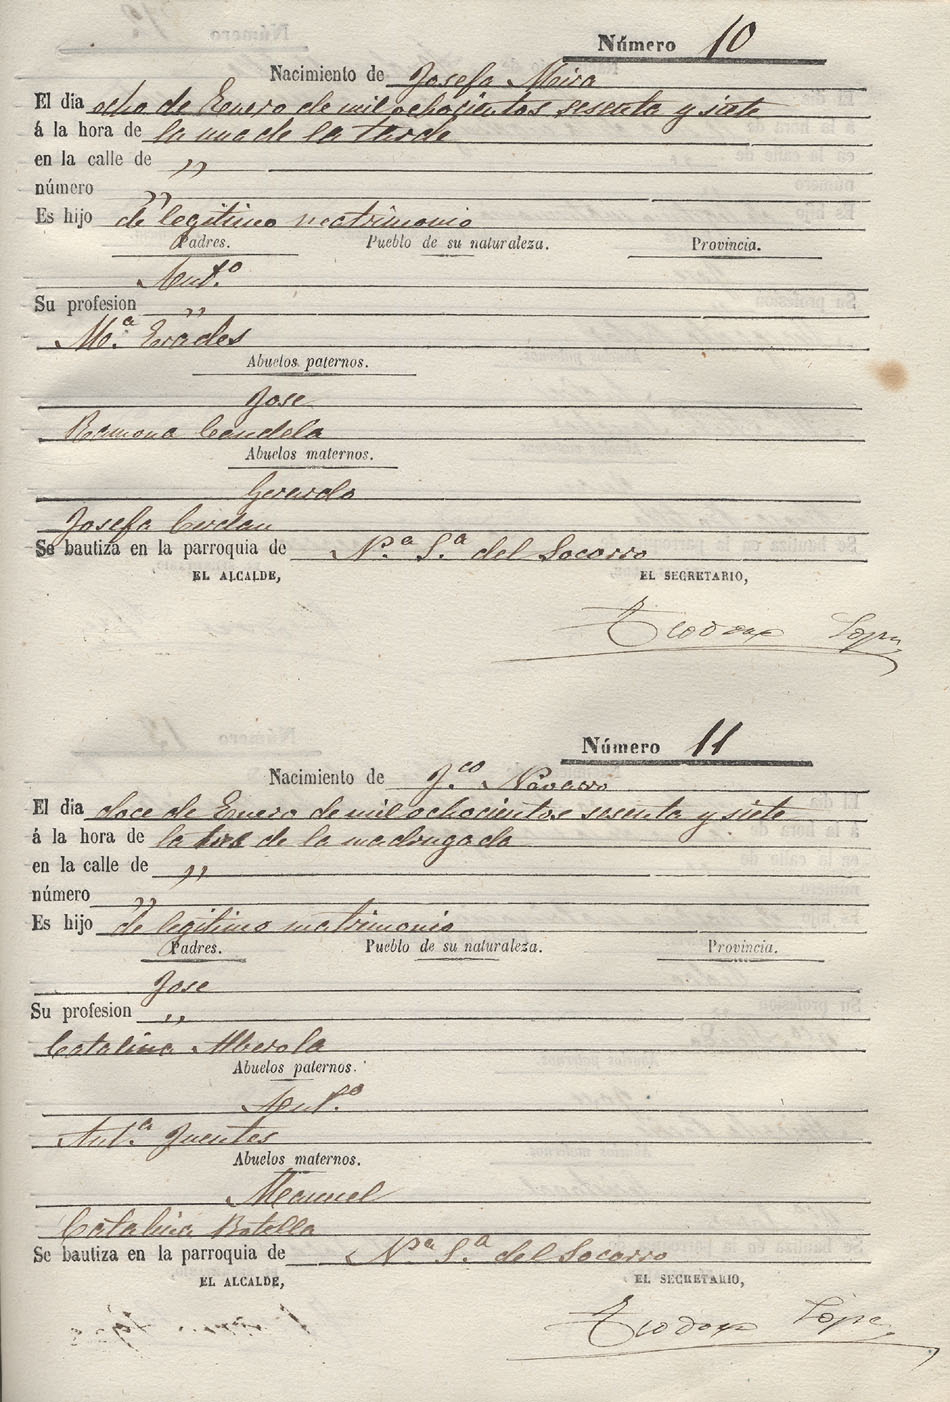 Número 10
Nacimiento de Josefa Mira
El dia ocho de Enero de mil ochocientos sesenta y siete
á la hora de la una de la tarde
en la calle de "
número "
Es hijo de legitimo matrimonio
Padres. Pueblo de su naturaleza. Provincia.
Ant.º
Su profesion "
M.ª Erades
Abuelos paternos.
Jose
Ramona Candela
Abuelos maternos.
Gerardo
Josefa Cerdan
Se bautiza en la parroquia de N.ª S.ª del Socorro
EL ALCALDE, EL SECRETARIO,
Teodoro Lopez
Número 11
Nacimiento de F.co Navarro
El dia doce de Enero de mil ochocientos sesenta y siete
á la hora de la tres de la madrugada
en la calle de "
número "
Es hijo de legitimo matrimonio
Padres. Pueblo de su naturaleza. Provincia.
Jose
Su profesion "
Catalina Alberola
Abuelos paternos.
Ant.º
Ant.ª Fuentes
Abuelos maternos.
Manuel
Catalina Botella
Se bautiza en la parroquia de N.ª S.ª del Socorro
EL ALCALDE, EL SECRETARIO,
Teodoro Lopez